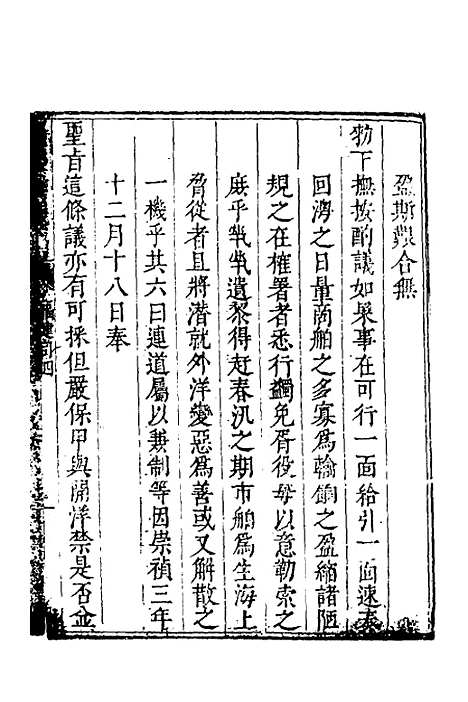 盈斯艱合無
勑下撫按酌議如果事在可行一面給引一面速奏
回澚之日量商舶之多寡為輸餉之盈縮諸陋
規之在榷署者悉行蠲免胥役毋以意勒索之
庶乎煢煢遺黎得赶春汛之期市舶為生海上
脅從者且將潛就外洋變惡為善或又解散之
一機乎其六曰連道屬以兼制等因崇禎三年
十二月十八日奉
聖旨這條議亦有可採但嚴保甲與開洋禁是否金